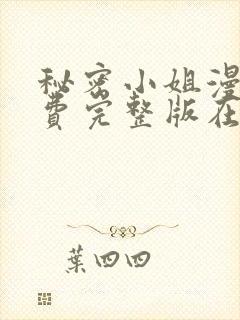 秘密小姐漫
费完整版在
葉四四